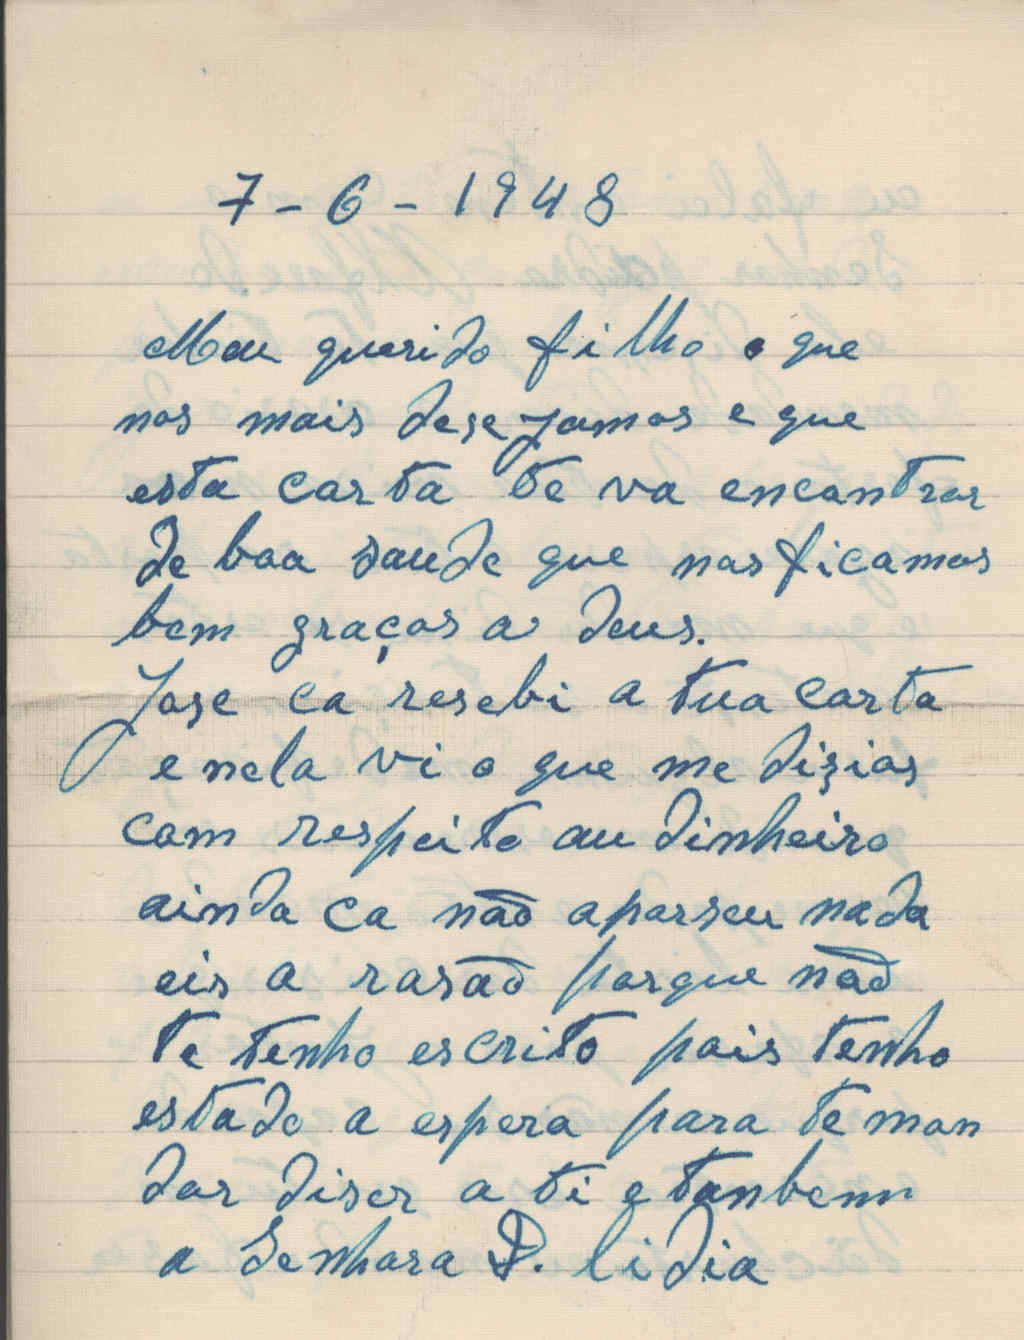 7-6-1948
Meu querido filho o que
nos mais desejamos e que
esta carta te va encontrar
de boa saude que nos ficamos
bem graças a Deus.
Jose ca resebi a tua carta
e nela vi o que me dizias
com respeito au dinheiro
ainda ca não aparseu nada
eis a rasão porque não
te tenho escrito pois tenho
estado a espera para te man
dar diser a ti e tanbem
a Senhora D. lidia